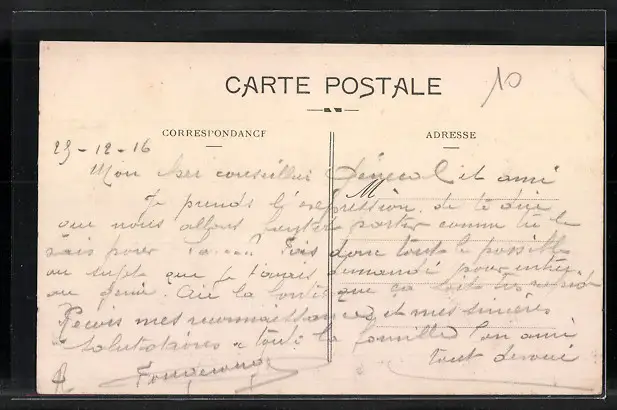 CARTE POSTALE
10
CORRESPONDANCE
ADRESSE
23-12-16
Mon cher conseiller Général et ami
M
Je prends l'expression de te dire
que nous allons partir comme tu le
sais pour Fais donc tout le possible
au sujet que je t'avais demandé pour entrer
au génie. Aie la bonté que ça soit très
Reçois mes reconnaissances et mes sincères
salutations a toute la famille ton ami
tout dévoué